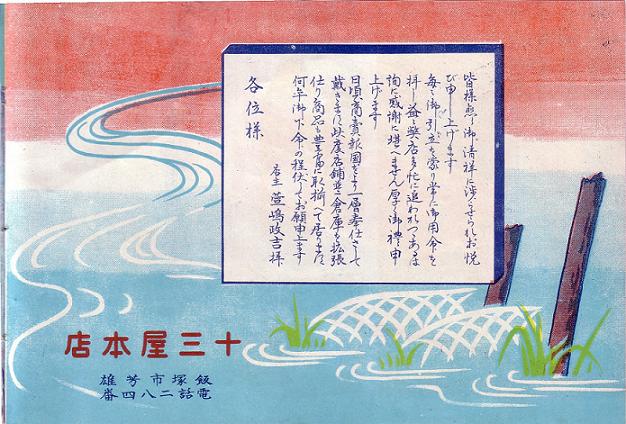 皆様愈々御清祥に渉らせられお悦
び申し上げます
毎々御引立を蒙り常に御用命を
拝し益々弊店多忙に追われつゝあるは
洵に感謝に堪へません厚く御禮申
上げます
日頃商賣報國をより一層奉仕させて
戴きまた此度店舗並に倉庫も拡張
仕り商品も豊富に取揃へて居ります
何卒御下命の程伏してお願申上ます
店主 萱嶋政吉拝
各位様
十三屋本店
飯塚市芳雄
電話二八四番